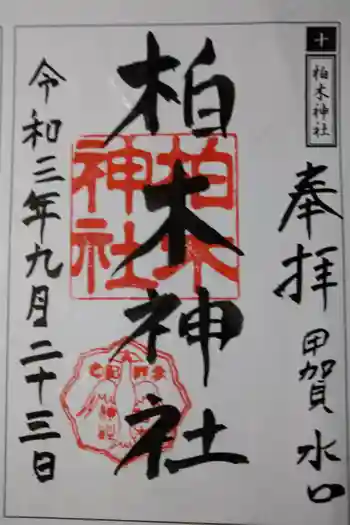 十
柏木神社
奉拝 甲賀 水口
柏木神社
柏木
神社
令和三年九月二十三日